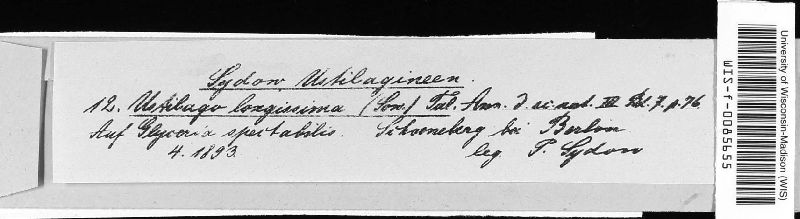 Sydow, Ustilagineen.
12. Ustilago longissima (Sow.) Tul. Ann. d. sc. nat. III Bd. 7. p. 76.
Auf Glyceria spectabilis. Schoeneberg bei Berlin
4. 1893. leg P. Sydow
University of Wisconsin-Madison (WIS)
WIS-f-0085655